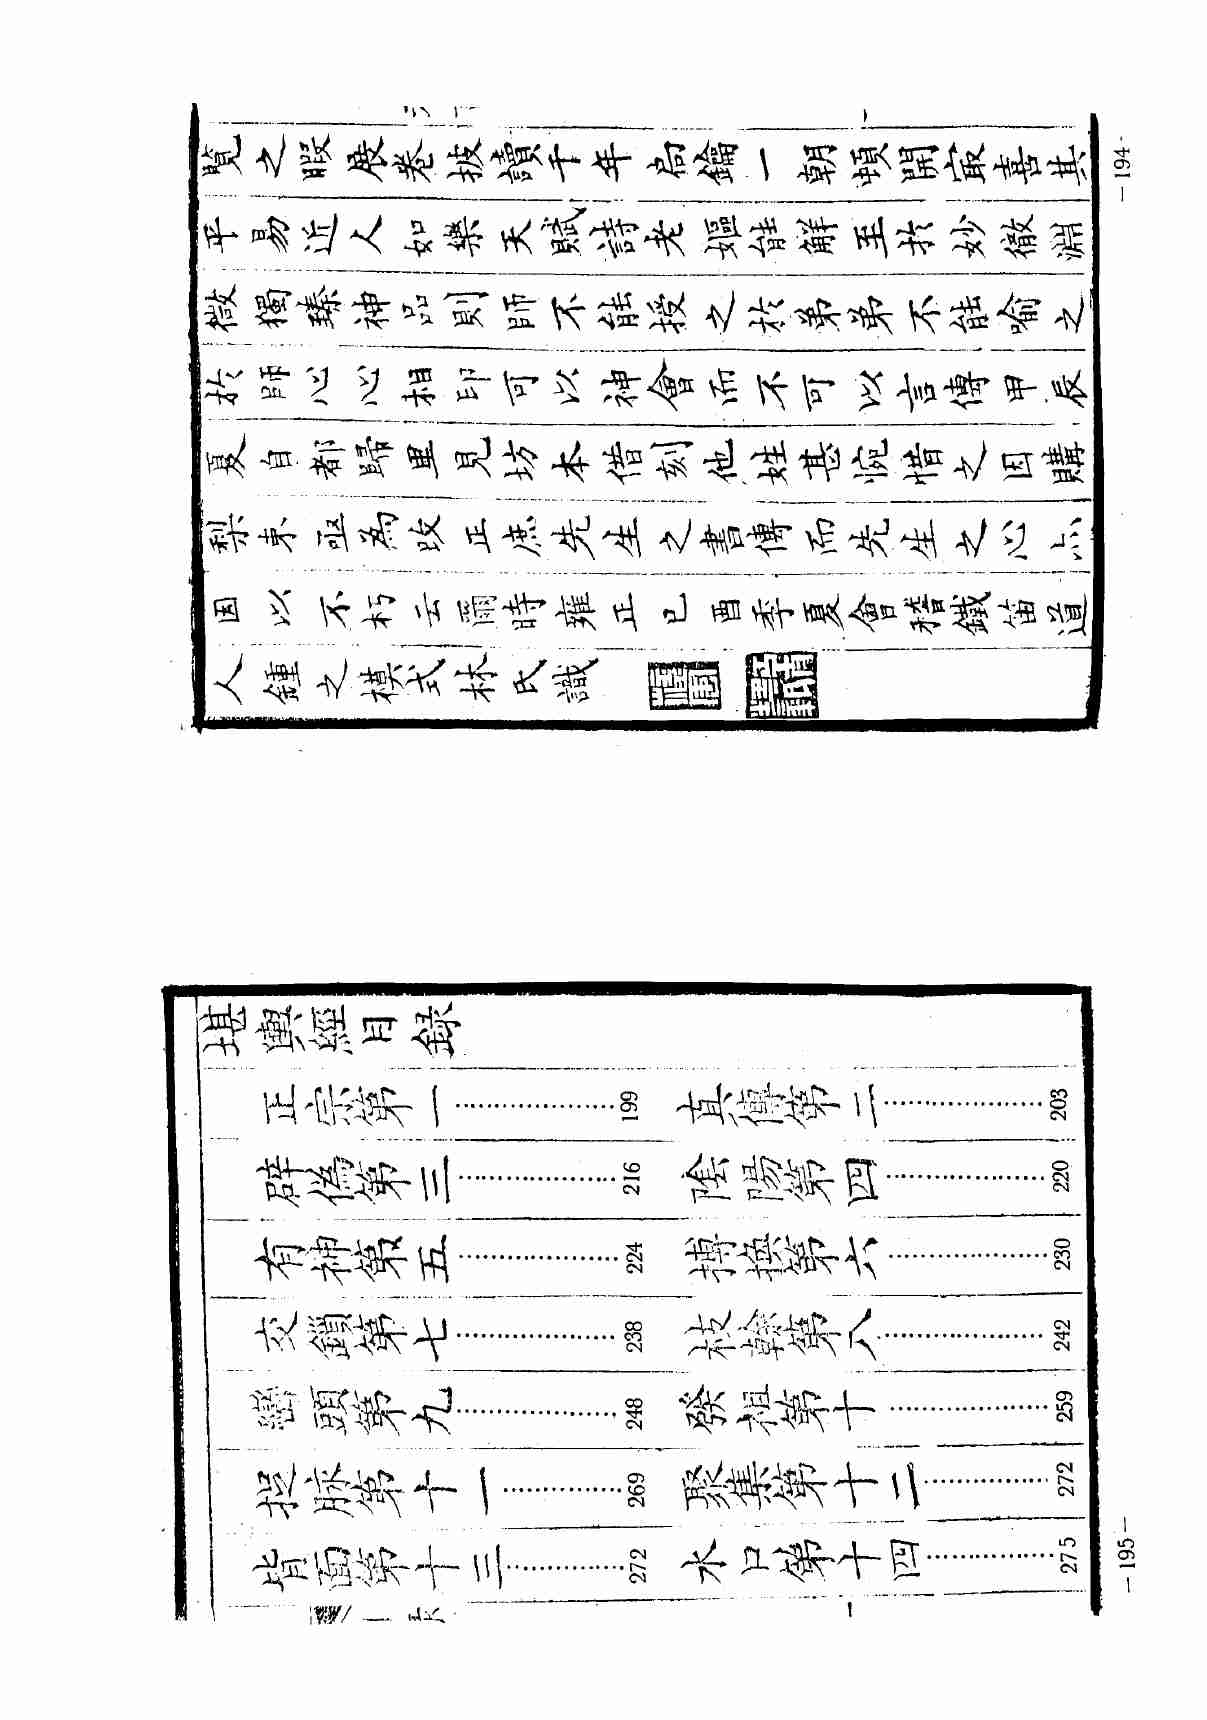 覽之暇展卷披讀千年尚鑰一朝頓開寂喜其
平易近人如樂天賦詩老嫗能解至扵妙徹淵
微獨臻神品則師不能授之扵弟弟不能喻之
扵師心心相印可以神會而不可以言傳甲辰
夏自都歸里見坊本借刻他姓甚惋惜之因購
梨束亟為改正庶先生之書傳而先生之心亦
因以不朽云爾時雍正己酉季夏會稽鐵笛道
人鍾之模式林氏識
-194-
堪輿經目錄
正宗第一………………199 真傳第二………………203
辟偽第三………………216 陰陽第四………………220
有神第五………………224 搏換第六………………230
交鎖第七………………238 枝幹第八………………242
巒頭第九………………248 發祖第十………………259
捉脉第十一……………269 聚集第十二……………272
背面第十三……………272 水口第十四……………275
-195-